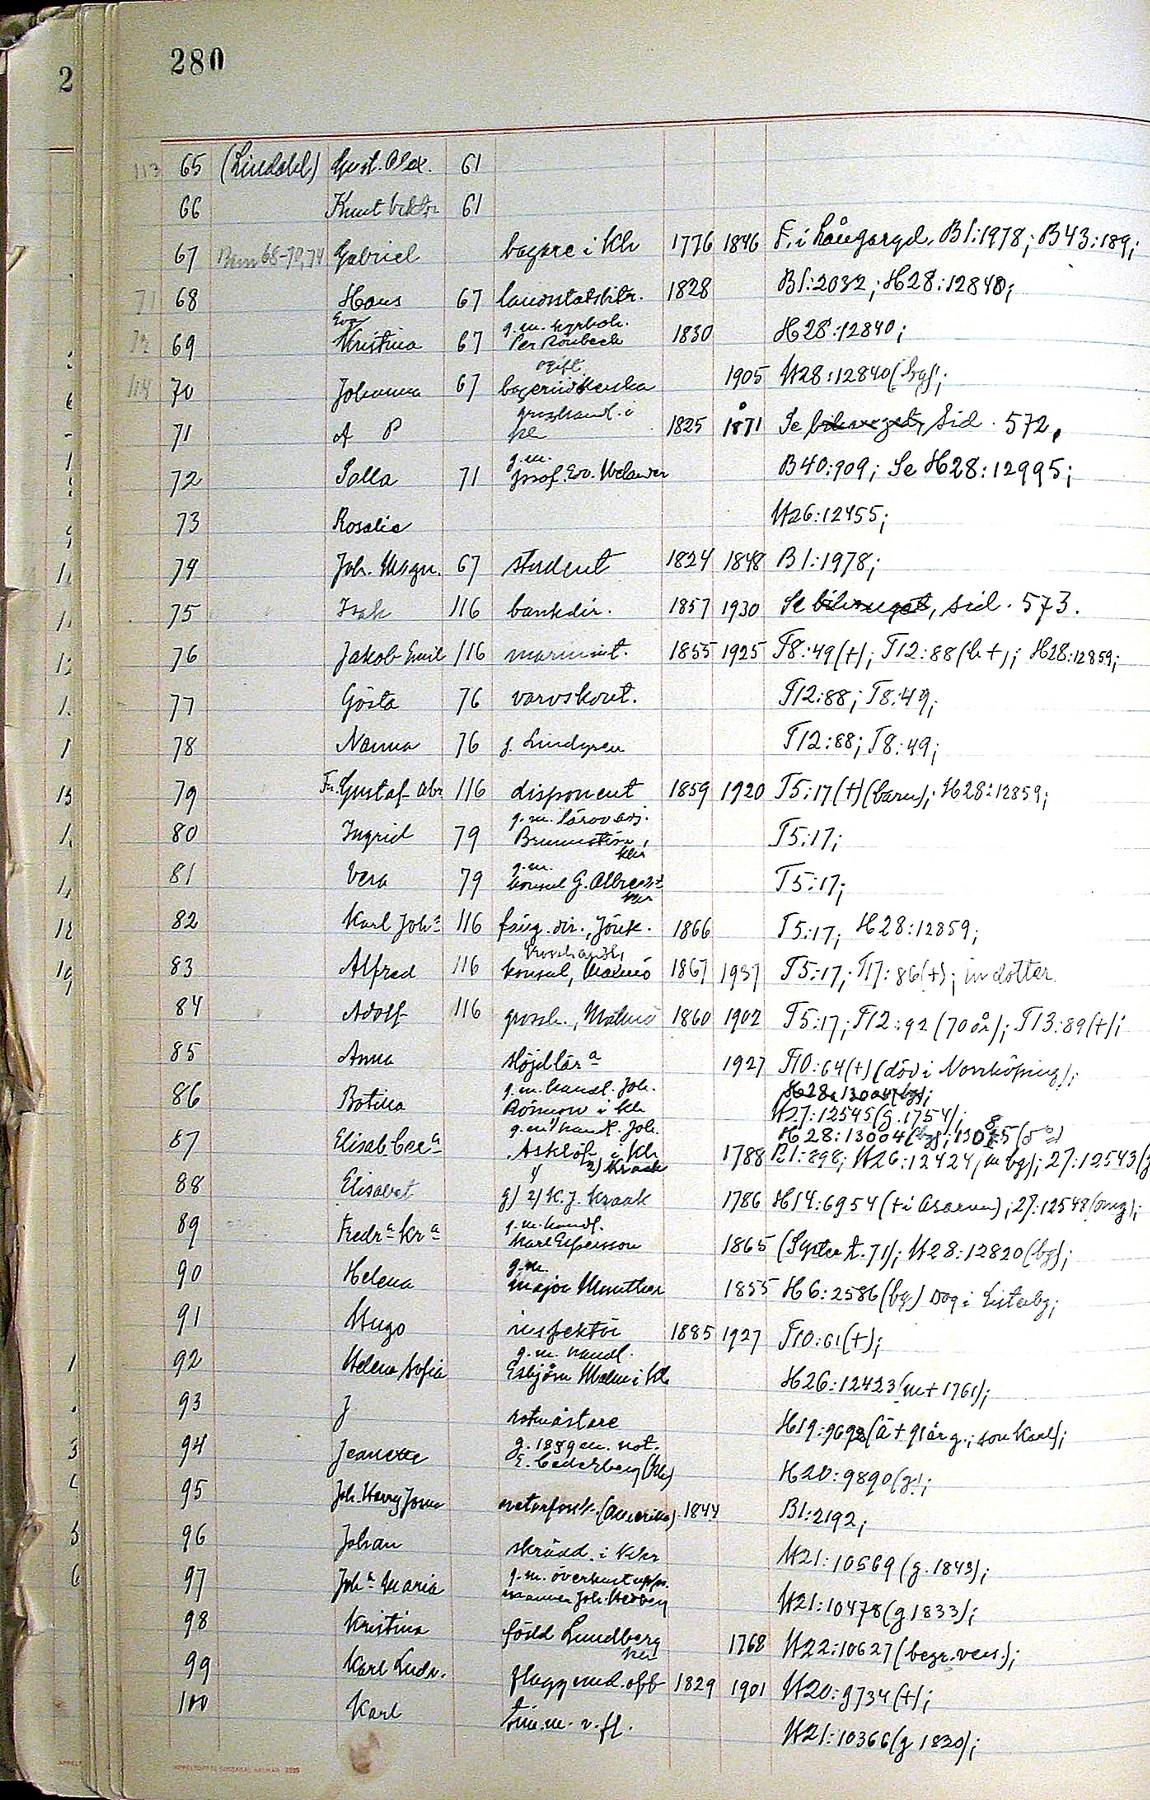 2
280
113 65 (Lindahl) Gust. Alex. 61
66 Knut Viktor 61
67 Barn 68-70, 74 Gabriel bagare i Klr 1776 1846 F. i Långaryd. B1:1978; B43:189;
71 68 Hans 67 1828 B1:2032; H28:12840;
Eva g.m. kyrkoh.
72 69 Kristina 67 Per Rönbeck 1830 H28:12840;
ogift
114 70 Johanna 67 bageriidkerska 1905 H28:12840 (bg);
grosshandl. i
71 A P Klr 1825 1871 Se sid. 572.
g.m.
72 Salla 71 Josef Ed. Welander B40:909; Se H28:12995;
73 Rosalie H26:12455;
74 Joh. Magn. 67 student 1824 1848 B1:1978;
75 Isak 116 bankdir. 1857 1930 Se sid. 573.
76 Jakob Emil 116 marinint. 1855 1925 T8:49(+); T12:88(h+); H28:12859;
77 Gösta 76 varvskont. T12:88; T8:49;
78 Nanna 76 f. Lindgren T12:88; T8:49;
79 Fr. Gustaf Abr 116 disponent 1859 1920 T5:17(+)(barn); H28:12859;
g.m. lärov.adj.
80 Ingrid 79 Klr T5:17;
g.m.
81 Vera 79 konsul G. T5:17;
82 Karl Joh:s 116 fäng.dir., Jönk. 1866 T5:17; H28:12859;
83 Alfred 116 konsul, Malmö 1867 1937 T5:17; T17:86(+); en dotter.
84 Adolf 116 grossh., Malmö 1860 1902 T5:17; T12:92 (70 år); T13:89(+);
85 Anna slöjdlär:a 1927 T10:64(+) (död i Norrköping);
g.m. handl. Joh. H28:13004(bg);
86 Botilla Rönnow i Klr H27:12545(g.1754);
g.m. 1) handl. Joh. H28:13004(bg);
87 Elisab. Askelöf i Klr 1788 B1:898; H26:12424(m bg); 27:12543
2) Kraak
88 Elisabet g) 2) K.J. Kraak 1786 H14:6954 (+ i Åsarum); 27:12548(omg);
g.m. handl.
89 Fredr:a Kr:a Karl Elfversson 1865 (Syster t. 71); H28:12820(bg);
g.m.
90 Helena major Munther 1855 H6:2586(bg) Dog i Listerby;
91 Hugo inspektör 1885 1927 T10:61(+);
g.m. handl.
92 Helena Sofia Esbjörn Malm i Klr H26:12423(m + 1761);
93 J rotmästare H19:9698(ä + 91 år g.; son Karl);
g. 1889 m. not.
94 Jeanette E. Cederberg (Klr) H20:9890(g);
95 Joh. Harry Josua naturforsk. (Amerika) 1844 B1:2192;
96 Johan skrädd. i Klr H21:10569 (g. 1843);
g.m. överkustupps.
97 Joh:a Maria Joh. Hedberg H21:10478(g 1833);
98 Kristina född Lundberg 1768 H22:10627(begr.ven.);
Klr
99 Karl Ludv. flaggund.off 1829 1901 H20:9734(+);
100 Karl tim.m. v. fl. H21:10366(g 1820);